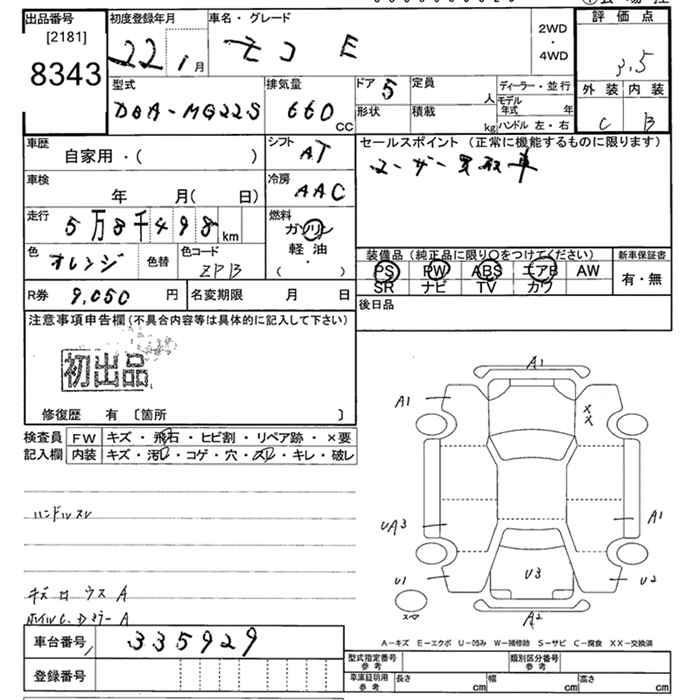 出品番号
[2181]
8343
初度登録年月
22 1月
車名・グレード
モコ E
2WD
・
4WD
評価点
3.5
外装 内装
C B
型式
DBA-MG22S
排気量
660 CC
ドア 5
形状
定員 人
積載 kg
ディーラー・並行
モデル年式 年
ハンドル 左・右
車歴
自家用・( )
シフト
AT
セールスポイント（正常に機能するものに限ります）
ユーザー買取車
車検
年 月( 日)
冷房
AAC
走行
5万8千498 km
燃料
ガソリン
軽・油
( )
色
オレンジ
色替
色コード
ZPB
装備品（純正品に限り○をつけてください）
PS PW ABS エアB AW
SR ナビ TV カワ
新車保証書
有・無
R券 9,050 円
名変期限 月 日
後日品
注意事項申告欄（不具合内容等は具体的に記入して下さい）
初出品
修復歴 有 〔箇所 〕
検査員
記入欄
FW キズ・飛石・ヒビ割・リペア跡・×要
内装 キズ・汚レ・コゲ・穴・スレ・キレ・破レ
ハンドルスレ
A1
A1
XX
UA3
A1
U1
U3
U2
A2
スペア
A-キズ E-エクボ U-凹み W-補修跡 S-サビ C-腐食 XX-交換済
車台番号 335929
登録番号
型式指定番号
参考
類別区分番号
参考
車庫証明用
参考
長さ cm
幅 cm
高さ cm